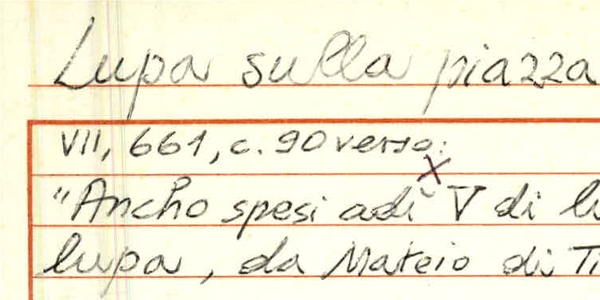 Lupa sulla piazza
VII, 661, c. 90 verso:
x
"Ancho spesi adì V di
lupa, da Mateio di